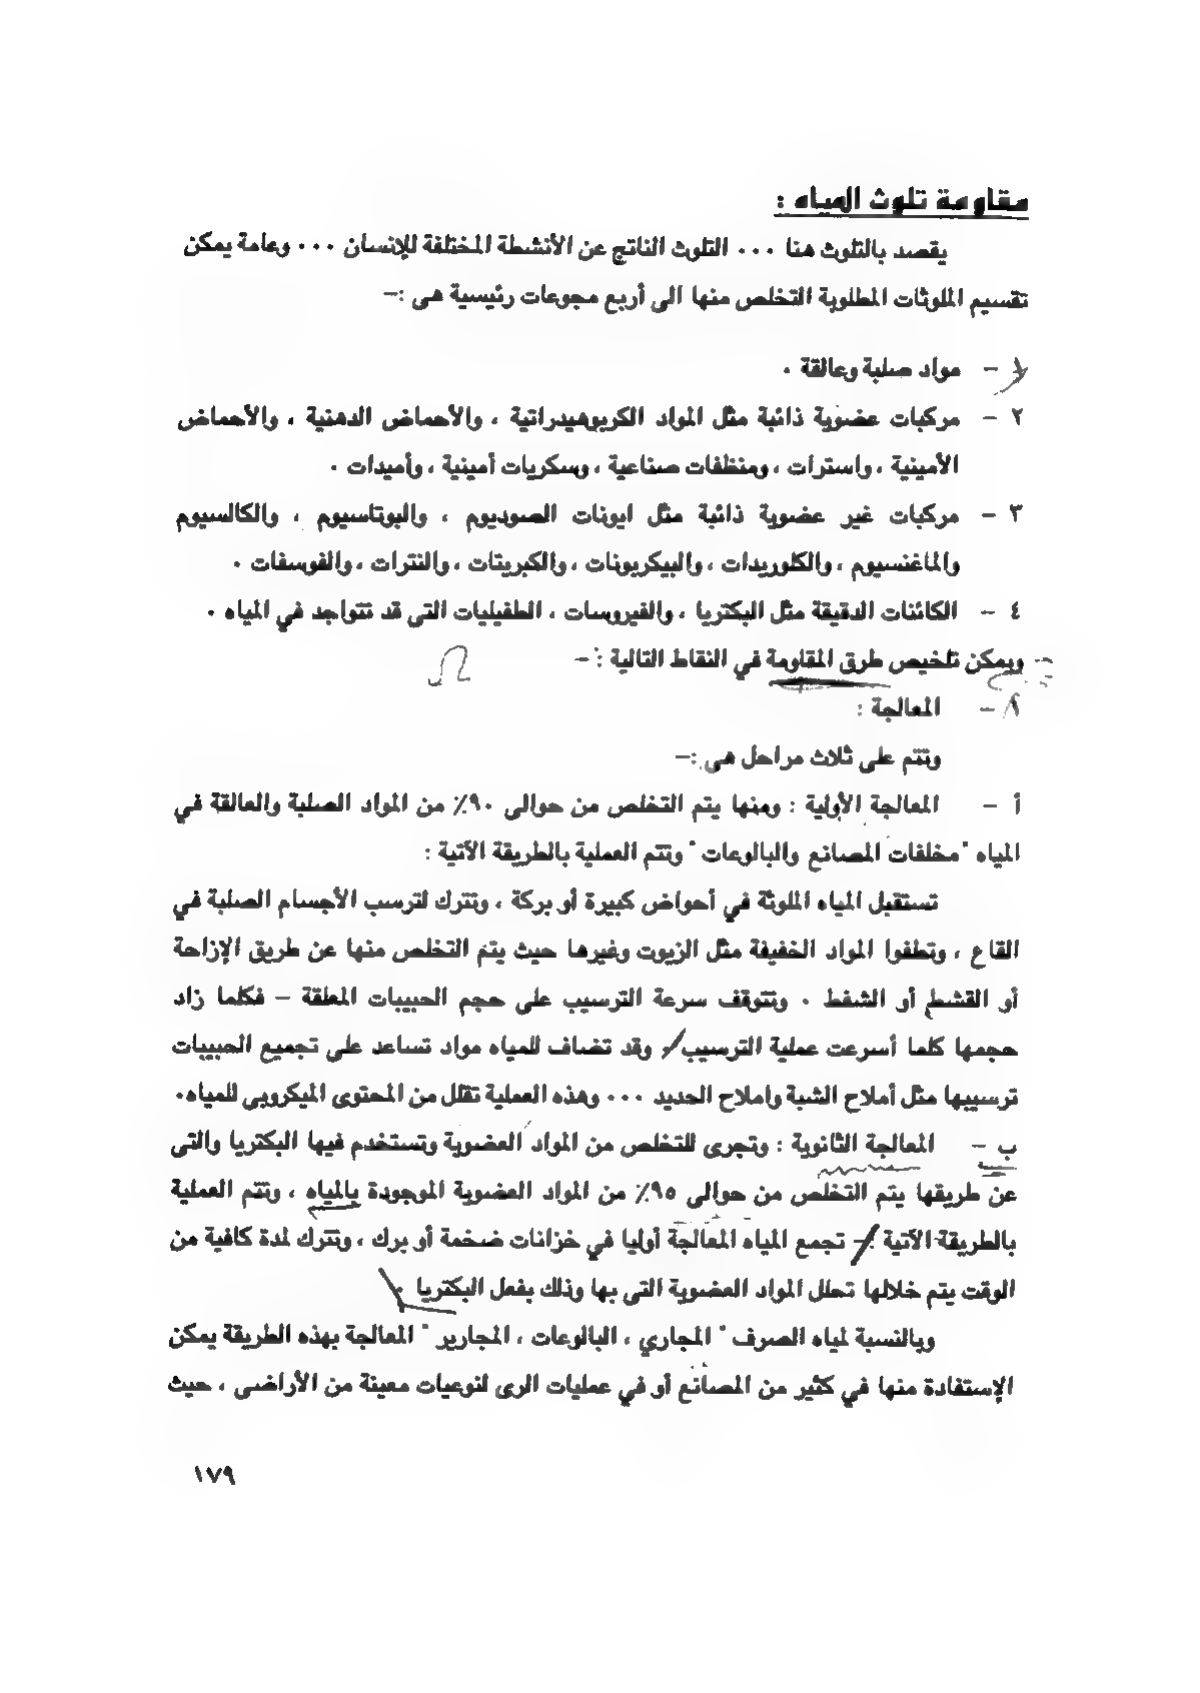 مقاومة تلوث المياه :
يقصد بالتلوث هنا ٠٠٠ التلوث الناتج عن الأنشطة المختلفة للإنسان ٠٠٠ وعامة يمكن
تقسيم الملوثات المطلوبة التخلص منها الى أربع مجوعات رئيسية هى :-
١ - مواد صلبة وعالقة ٠
٢ - مركبات عضوية ذائبة مثل المواد الكربوهيدراتية ، والأحماض الدهنية ، والأحماض
الأمينية ، واسترات ، ومنظفات صناعية ، وسكريات أمينية ، وأميدات ٠
٣ - مركبات غير عضوية ذائبة مثل ايونات الصوديوم ، والبوتاسيوم ، والكالسيوم
والماغنسيوم ، والكلوريدات ، والبيكربونات ، والكبريتات ، والنترات ، والفوسفات ٠
٤ - الكائنات الدقيقة مثل البكتريا ، والفيروسات ، الطفيليات التى قد تتواجد في المياه ٠
ويمكن تلخيص طرق المقاومة في النقاط التالية :-
١ - المعالجة :
وتتم على ثلاث مراحل هى :-
أ - المعالجة الأولية : ومنها يتم التخلص من حوالى ٩٠٪ من المواد الصلبة والعالقة في
المياه "مخلفات المصانع والبالوعات" وتتم العملية بالطريقة الآتية :
تستقبل المياه الملوثة في أحواض كبيرة أو بركة ، وتترك لترسب الأجسام الصلبة في
القاع ، وتطفوا المواد الخفيفة مثل الزيوت وغيرها حيث يتم التخلص منها عن طريق الإزاحة
أو القشط أو الشفط ٠ وتتوقف سرعة الترسيب على حجم الحبيبات المعلقة - فكلما زاد
حجمها كلما أسرعت عملية الترسيب ، وقد تضاف للمياه مواد تساعد على تجميع الحبيبات
ترسيبها مثل أملاح الشبة واملاح الحديد ٠٠٠ وهذه العملية تقلل من المحتوى الميكروبى للمياه٠
ب - المعالجة الثانوية : وتجرى للتخلص من المواد العضوية وتستخدم فيها البكتريا والتى
عن طريقها يتم التخلص من حوالى ٩٥٪ من المواد العضوية الموجودة بالمياه ، وتتم العملية
بالطريقة الآتية :- تجمع المياه المعالجة أوليا في خزانات ضخمة أو برك ، وتترك لمدة كافية من
الوقت يتم خلالها تحلل المواد العضوية التى بها وذلك بفعل البكتريا ٠
وبالنسبة لمياه الصرف " المجاري ، البالوعات ، المجارير " المعالجة بهذه الطريقة يمكن
الإستفادة منها في كثير من المصانع أو في عمليات الرى لنوعيات معينة من الأراضى ، حيث
١٧٩